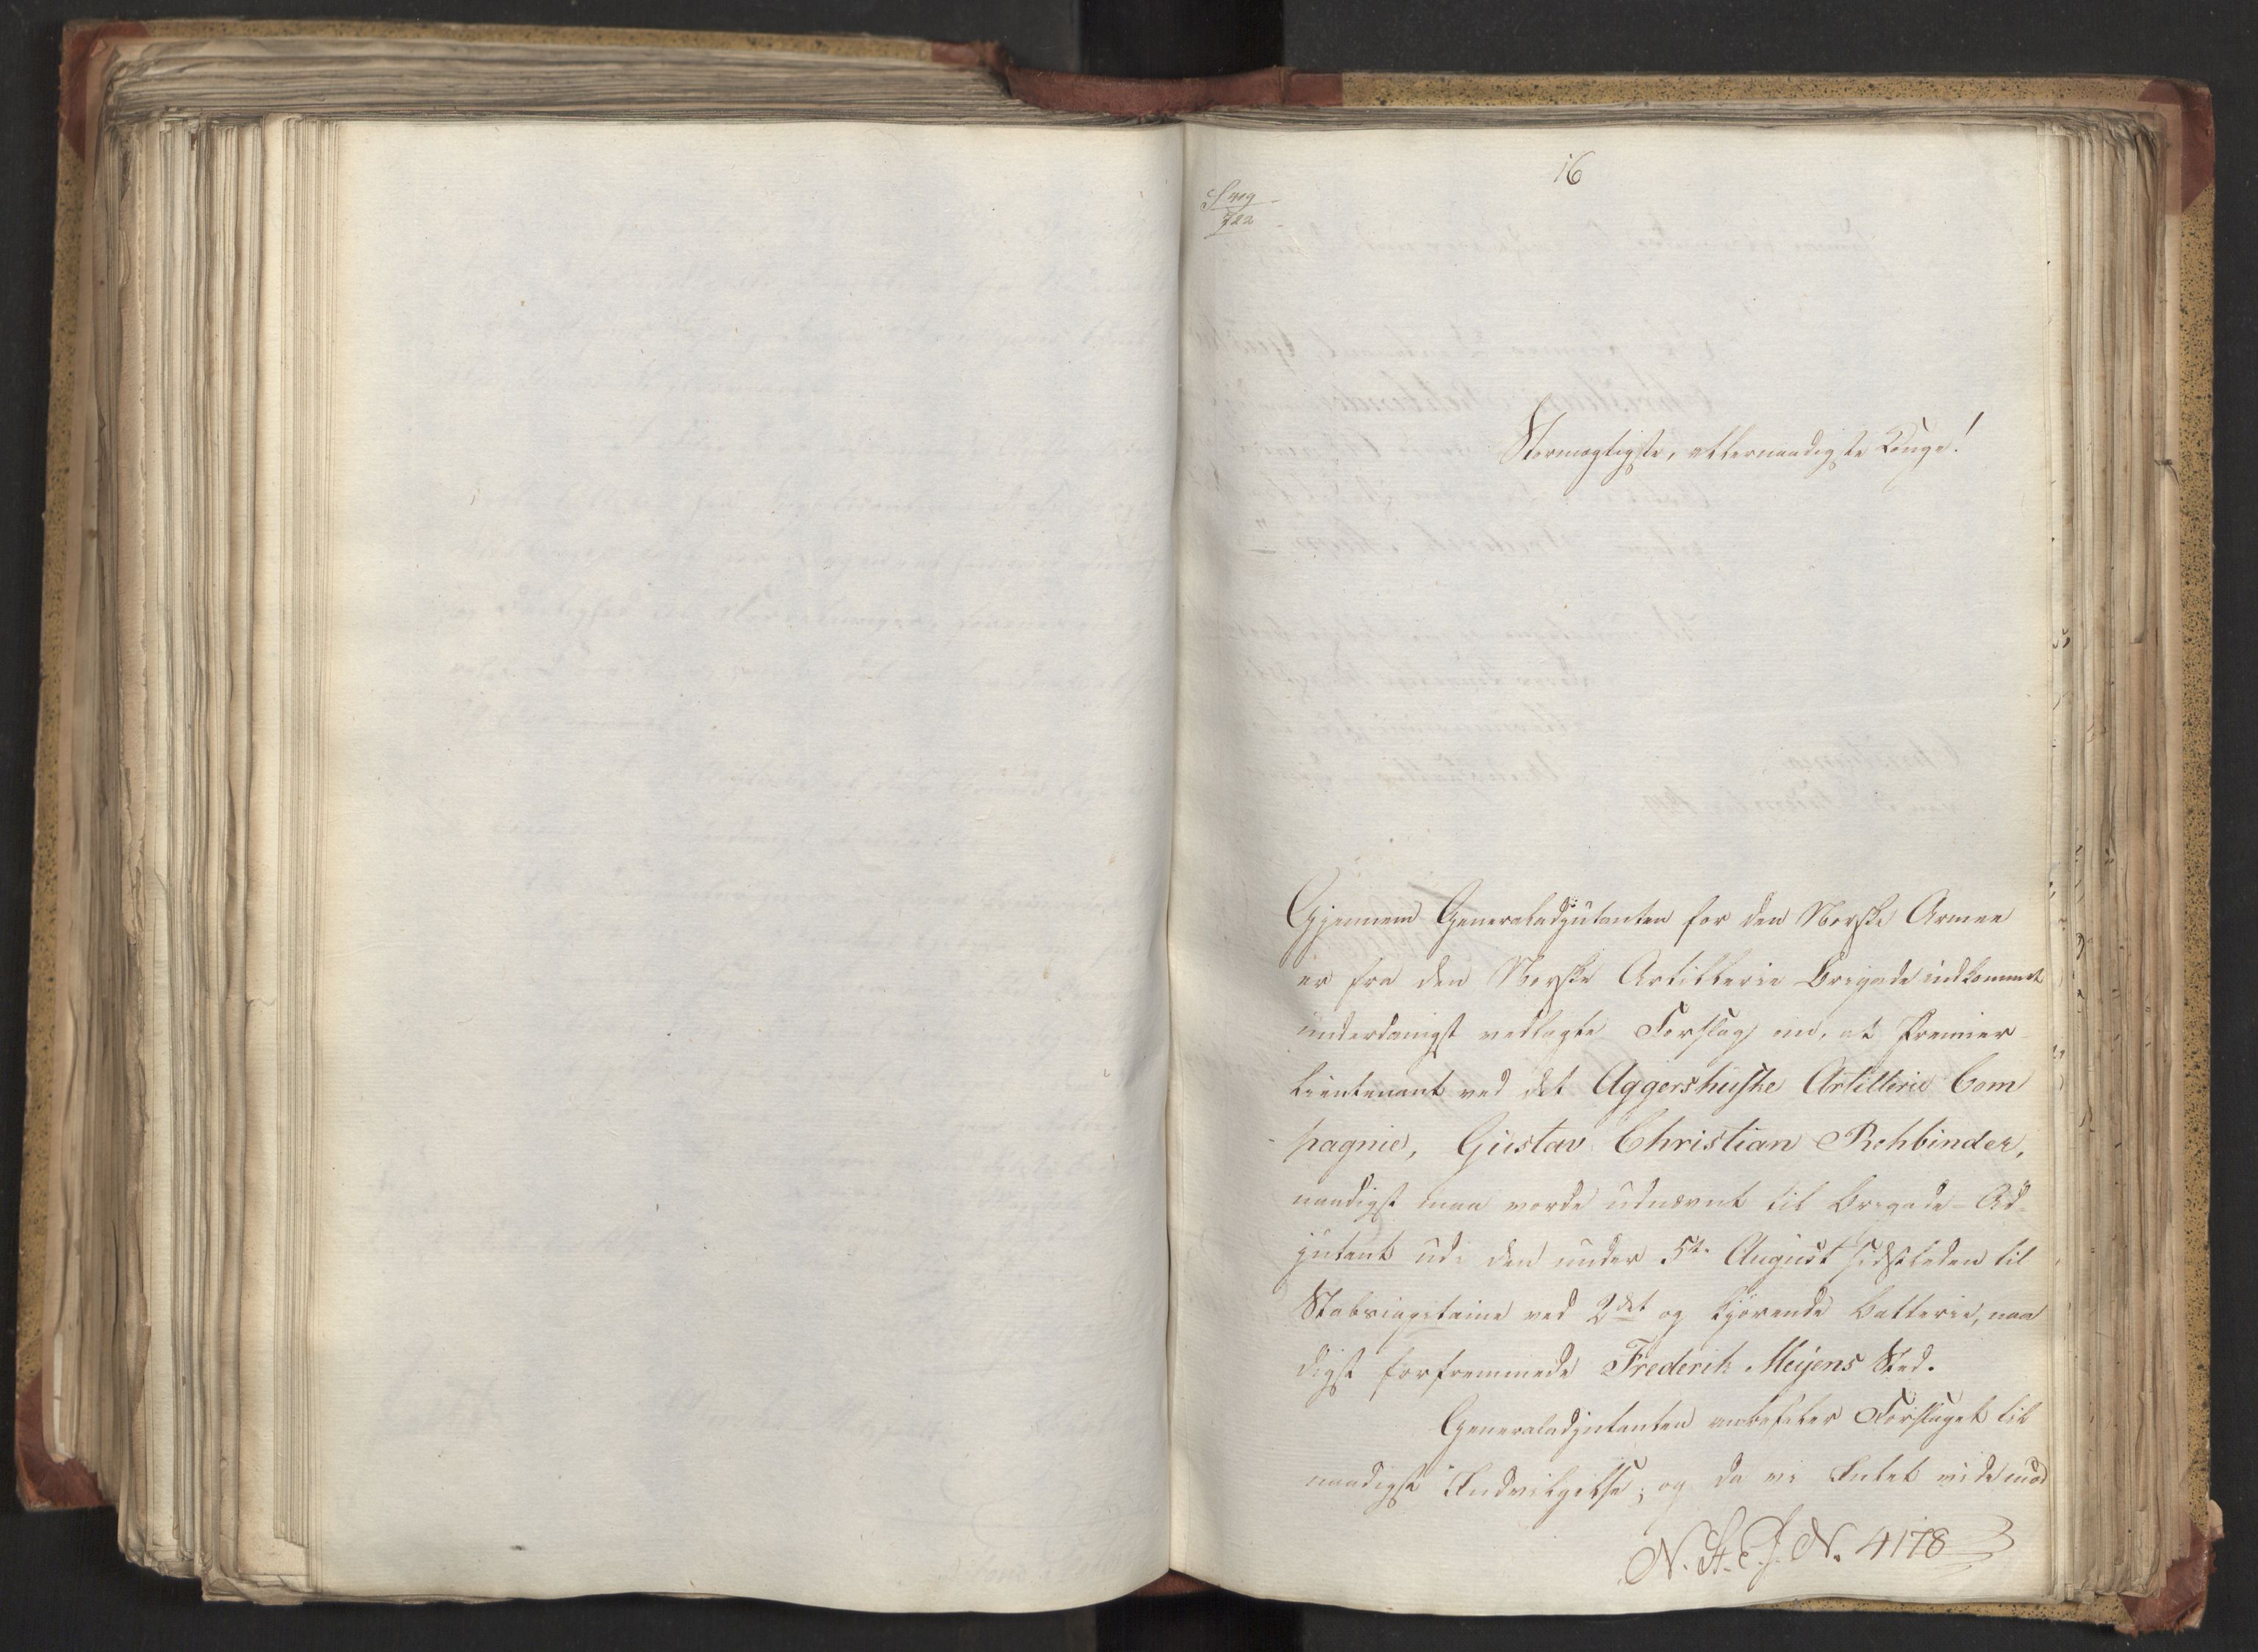 16
722
Stormægtigste, allernaadigste Konge!
Gjennem Generaladjutanten for den Norske Armee
er fra den Norske Artillerie Brigade indkommet
underdanigst vedlagte Forslag om, at Premier
Lieutenant ved det Aggershuske Artillerie Com
pagnie, Gustav Christian Rehbinder,
naadigst maa vorde udnævnt til Brigade-Ad-
jutant udi den under 5te August sidstleden til
Stabscapitaine ved 2det og kjørende Batterie, naa
digst forfremmede Frederik Meyens Sted.
Generaladjutanten anbefaler Forslaget til
naadigst Indvilgelse; og da vi Intet vide mod
N. St. E. J. N. 4178